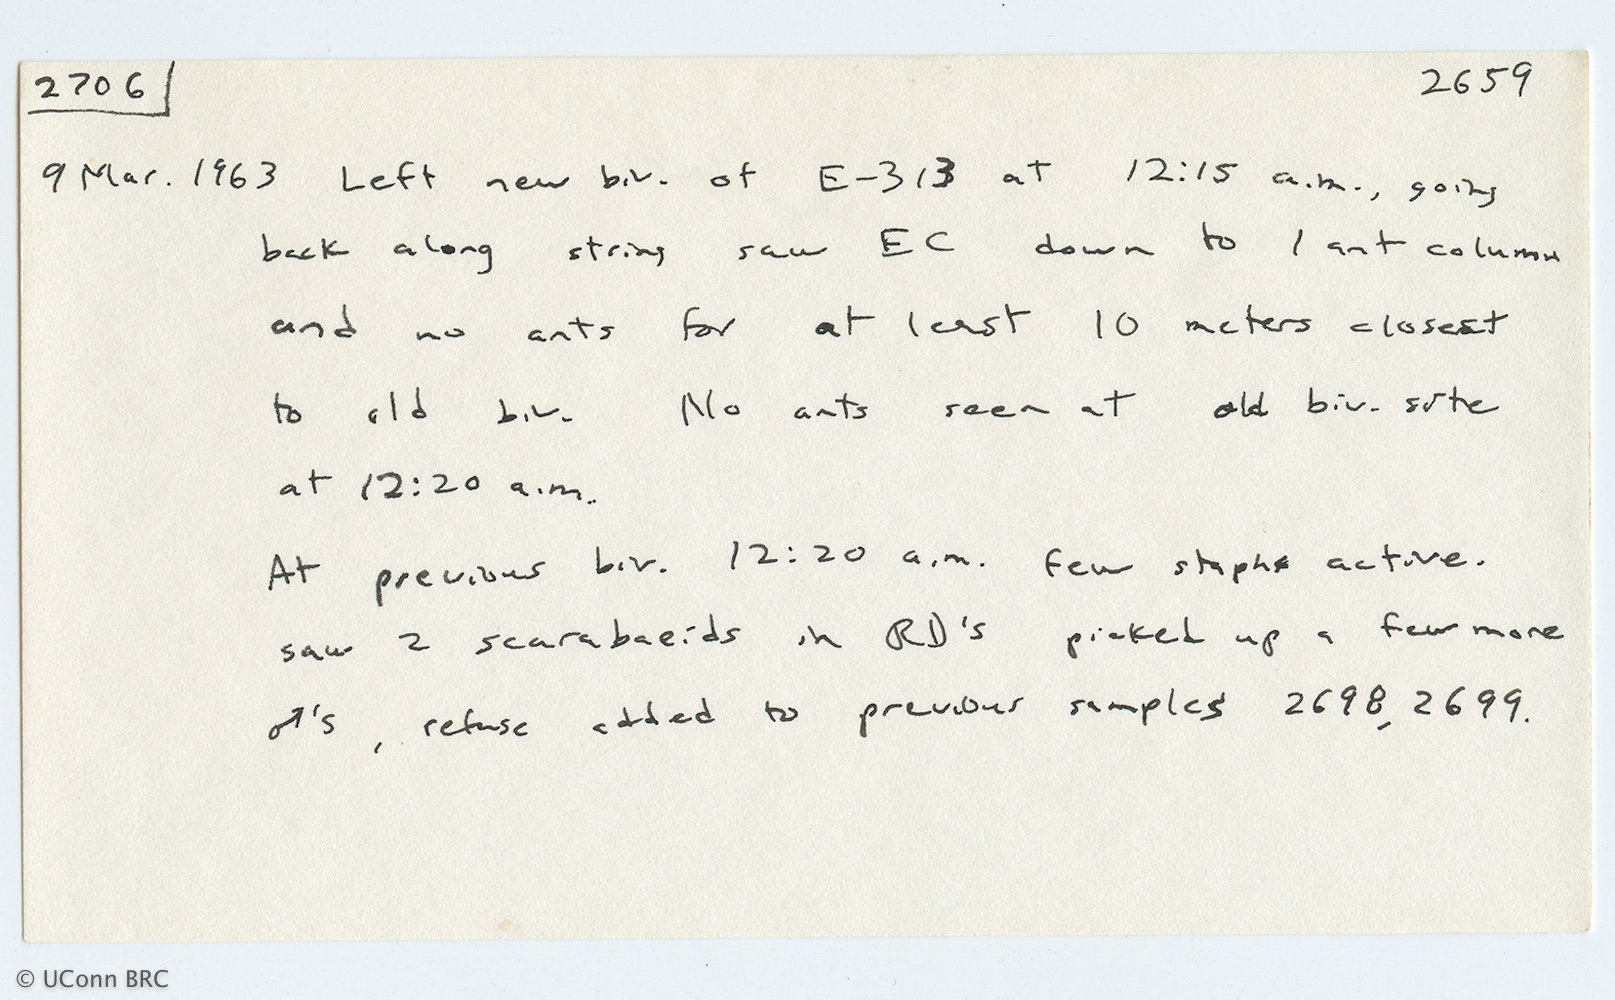 2706 2659
9 Mar. 1963 Left new biv. of E-313 at 12:15 a.m., going
back along string saw EC down to 1 ant column
and no ants for at least 10 meters closest
to old biv. No ants seen at old biv. site
at 12:20 a.m.
At previous biv. 12:20 a.m. few staphs active.
saw 2 scarabaeids in RD's picked up a few more
♂'s, refuse added to previous samples 2698, 2699.
© UConn BRC